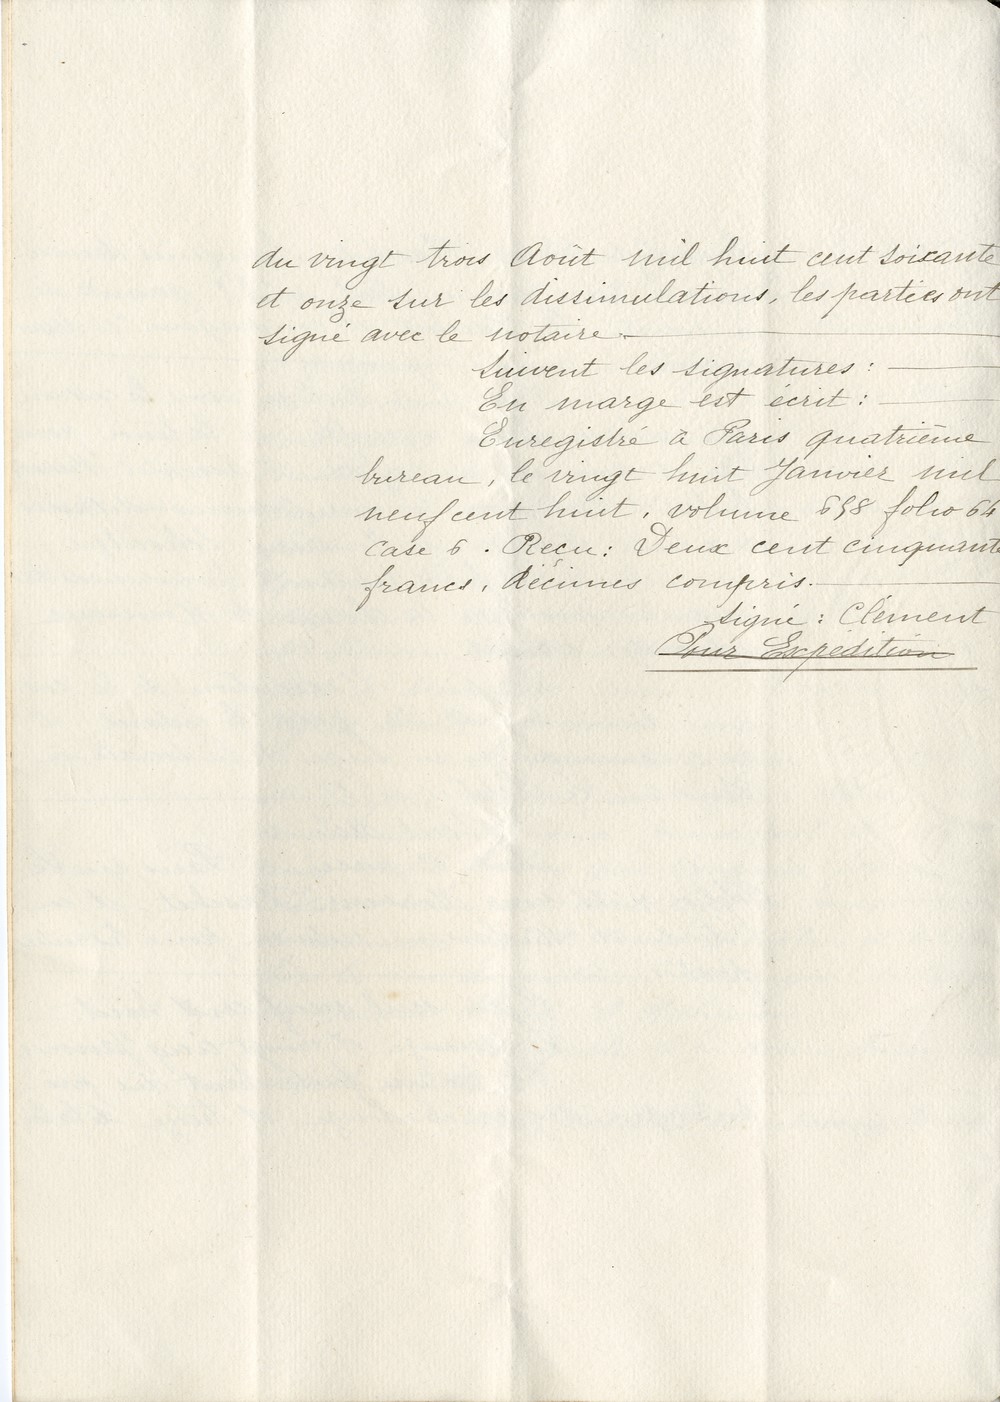 du vingt trois Août mil huit cent soixante
et onze sur les dissimulations, les parties ont
signé avec le notaire.
Suivent les signatures :
En marge est écrit :
Enregistré à Paris quatrième
bureau, le vingt huit Janvier mil
neuf cent huit, volume 658 folio 64
case 6. Reçu : Deux cent cinquante
francs, décimes compris.
Signé : Clément
Pour Expédition